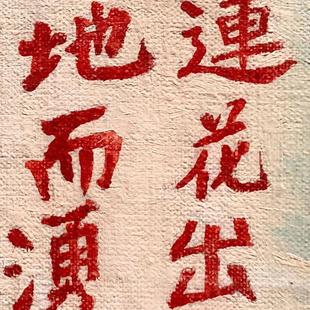 連花出
地而湧